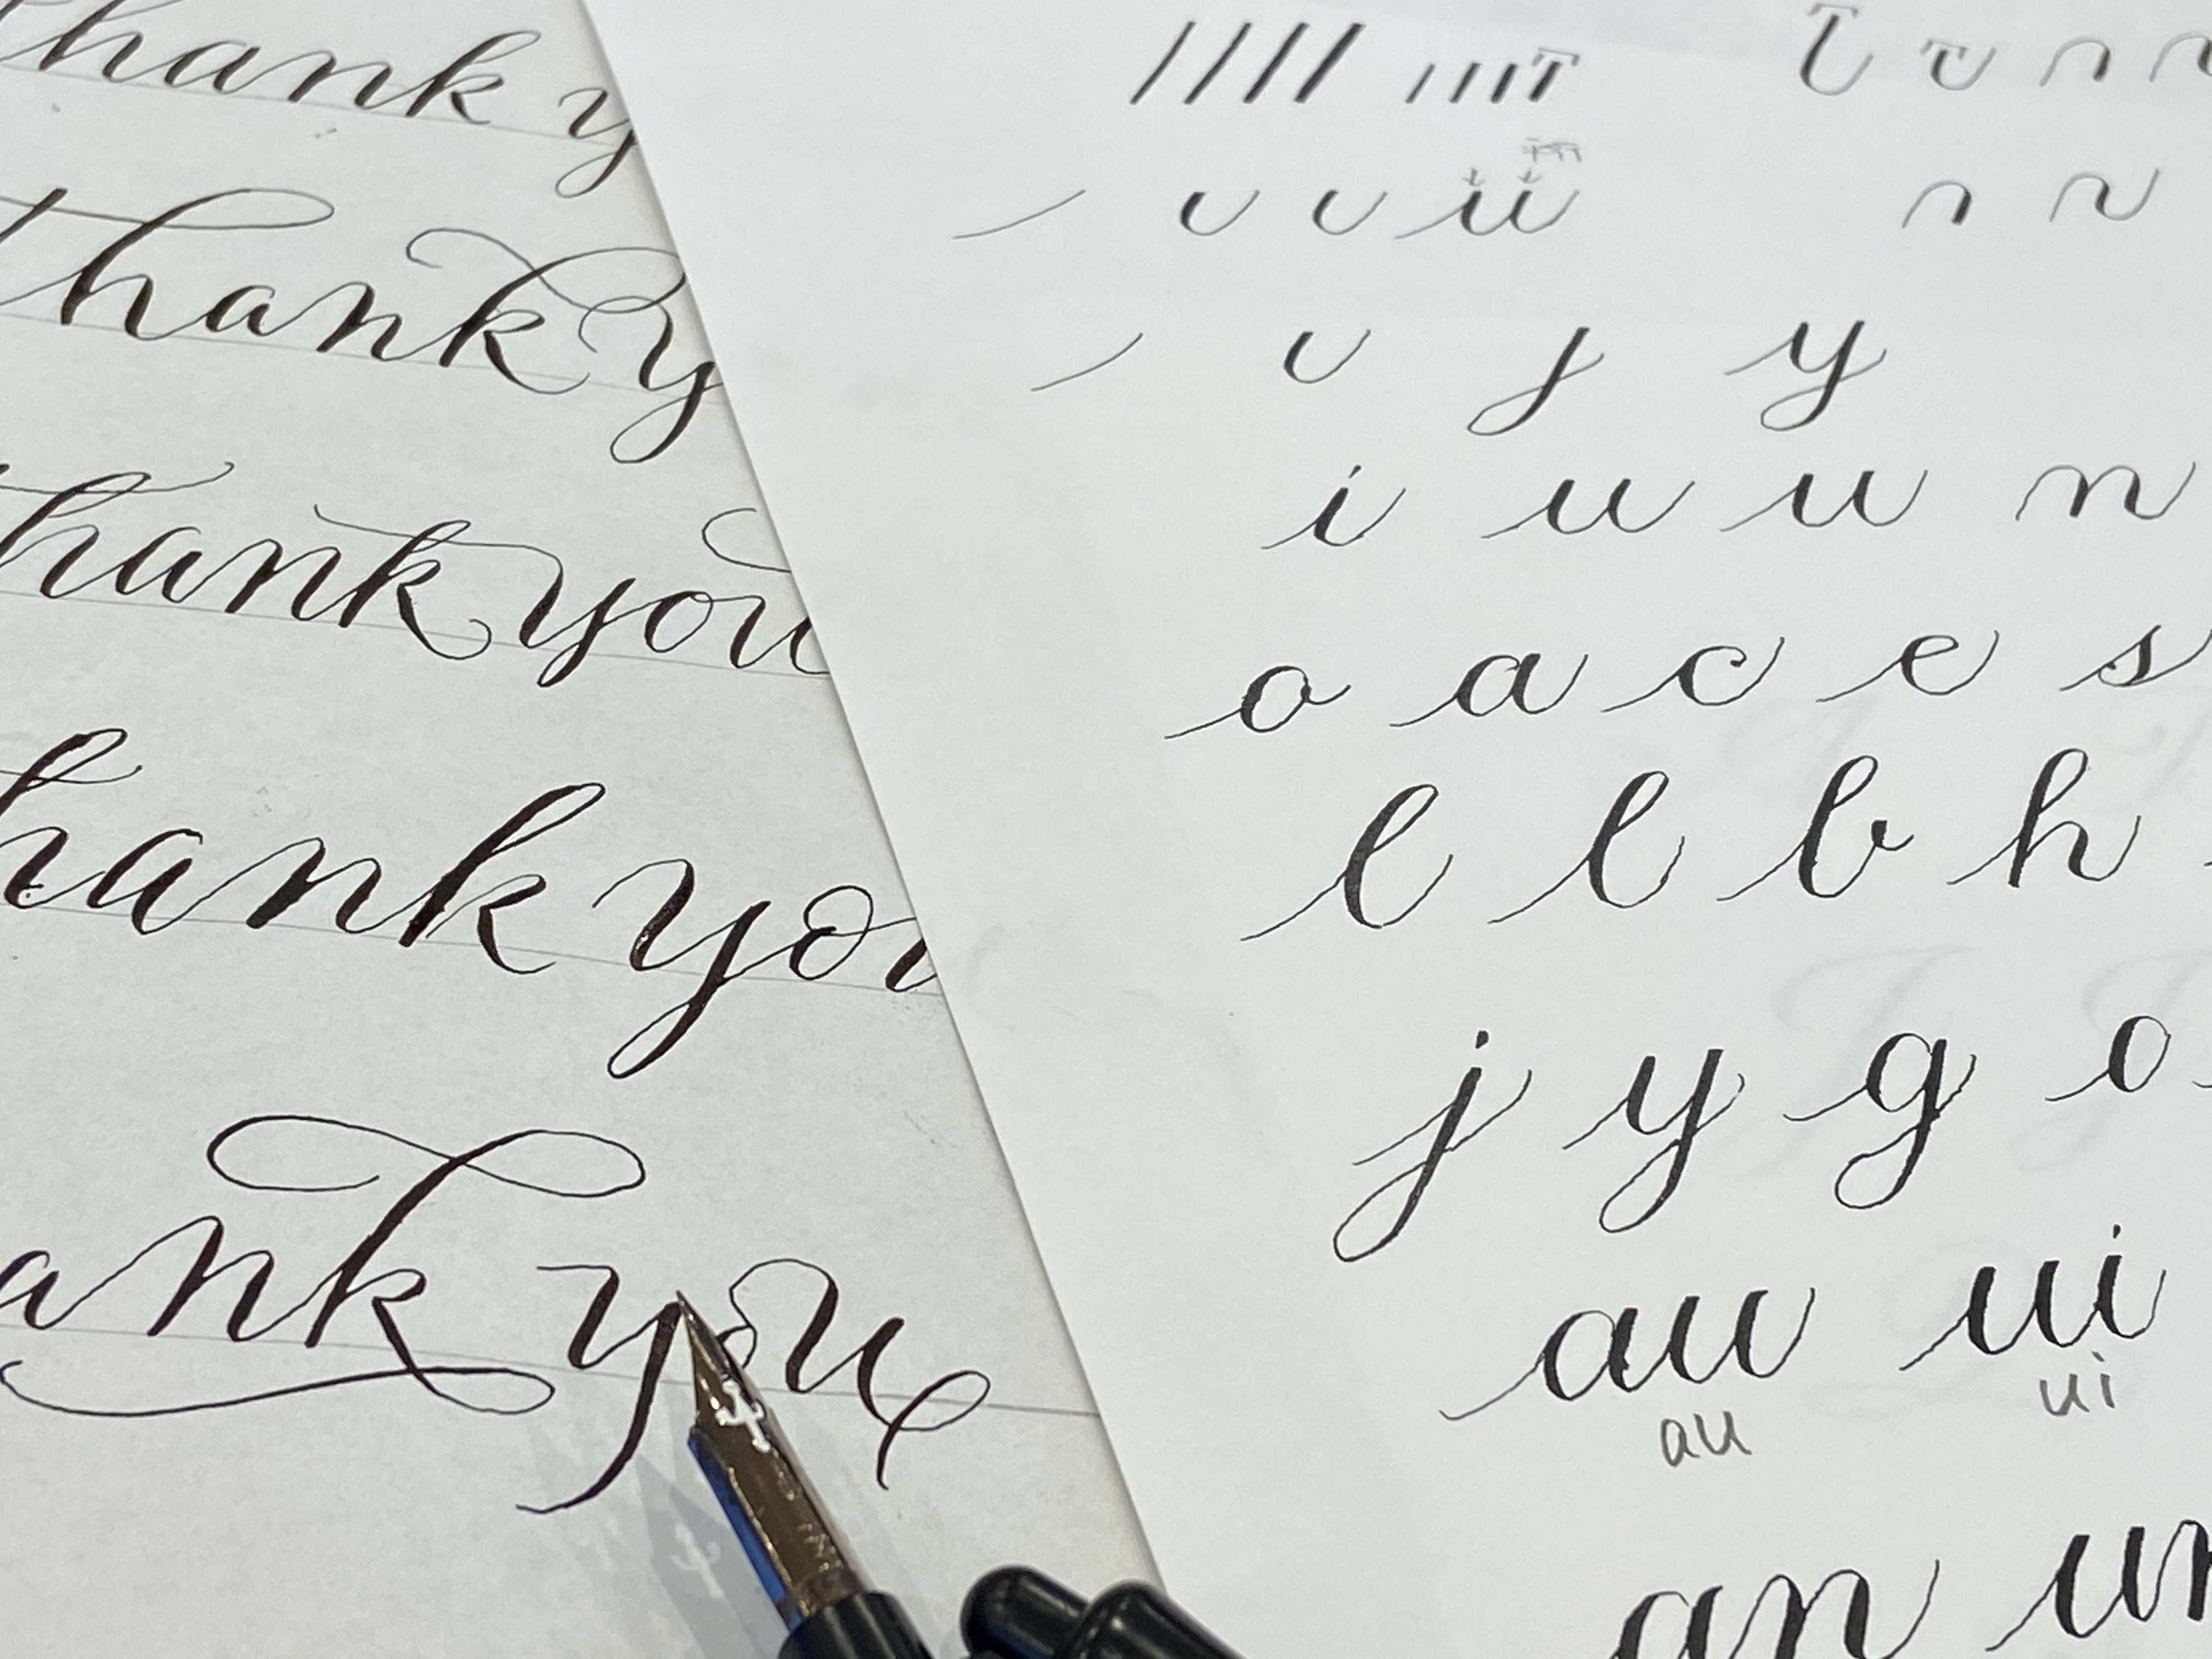 thank y
thank y
thank you
hank you
ank you
j y
i u u n
o a c e s
l l b h
j y g o
au ui
au ui
an un